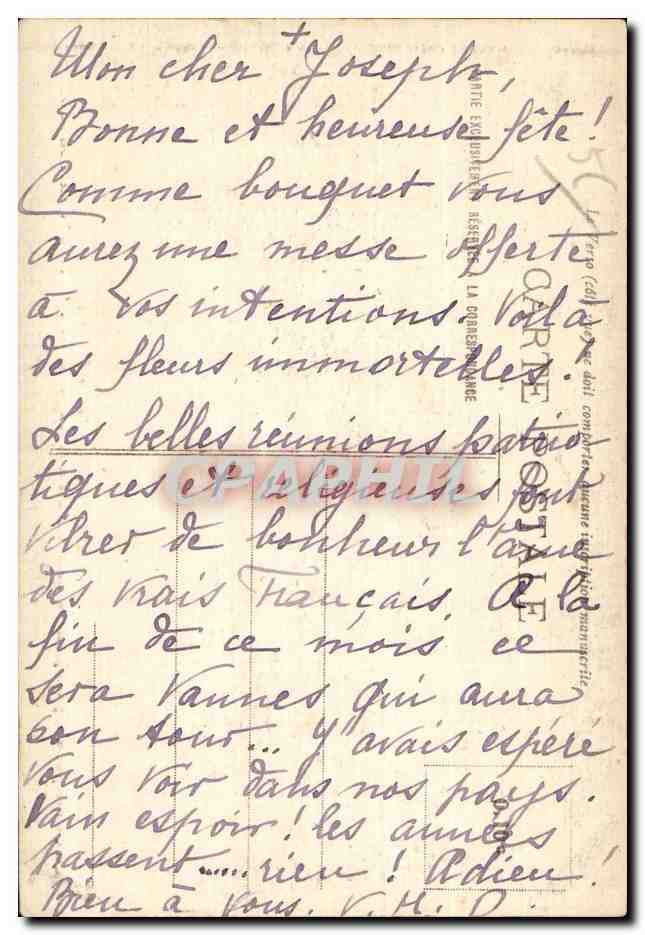 +
Mon cher Joseph,
Bonne et heureuse fête!
Comme bouquet vous
aurez une messe offerte
à vos intentions. Voilà
des fleurs immortelles.
Les belles réunions patrio
tiques et religieuses font
vibrer de bonheur l'âme
des vrais Français. A la
fin de ce mois ce
sera Vannes qui aura
son tour... J'avais espéré
vous voir dans nos pays.
Vain espoir! les années
passent...... rien! Adieu!
Bien à vous. V. H. D.
CARTE POSTALE
PARTIE EXCLUSIVEMENT RÉSERVÉE A LA CORRESPONDANCE
Le Verso (côté vue) ne doit comporter aucune inscription manuscrite
CPAPHIL